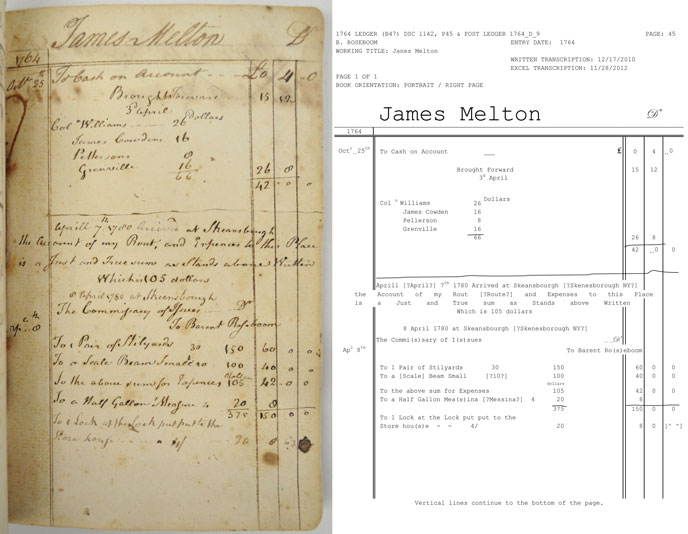 James Melton Dr
1764
Octbr 25th To Cash on Account - - £0 4 0
Brought Forward 15 12
3d April
Dollars
Col Williams 26
James Cowden 16
Pettersons 8
Grenville 16 26 8
66
42 0 0
Aprill 7th 1780 at Skeansbough
the Account of my Rout, and Expences to this Place
is a Just and True sum as Stands above Written
Which is 105 dollars
8 April 1780 at Skeensborough
The Commissary of Issues Dr
To Barent Roseboom
To 1 Pair of Stilyards 30 150 60 0 0
To a Scale Beam Small 100 40 0 0
To the above sum for Expences 105 42 0 0
To a Half Gallon Measure 4 20 8
375 150 0 0
To 1 Lock at the Lock put put to the
Store house 4/ 20 8 0
1764 LEDGER (B47) DSC 1142, P45 & FOST LEDGER 1764_D_9 PAGE: 45
B. ROSEBOOM ENTRY DATE: 1764
WORKING TITLE: James Melton
WRITTEN TRANSCRIPTION: 12/17/2010
EXCEL TRANSCRIPTION: 11/28/2012
PAGE 1 OF 1
BOOK ORIENTATION: PORTRAIT / RIGHT PAGE
James Melton Dr
1764
Octb_25th To Cash on Account ___ £ 0 4 _0
Brought Forward 15 12
3d April
Dollars
Col o Williams 26
James Cowden 16
Pellerson 8
Grenville 16
66 26 8
42 _0 0
Aprill [?April?] 7th 1780 Arrived at Skeansbourgh [?Skenesborough NY?]
the Account of my Rout [?Route?] and Expences to this Place
is a Just and True sum as Stands above Written
Which is 105 dollars
8 April 1780 at Skeansbourgh [?Skenesborough NY?]
The Commi(s)sary of I(s)sues __Dr
Apl 8th To Barent Ro(s)eboom
To 1 Pair of Stilyards 30 150 60 0 0
To a [Scale] Beam Small [?10?] 100 40 0 0
dollars
To the above sum for Expences 105 42 0 0
To a Half Gallon Mea(s)sina [?Messina?] 4 20 8
375 150 0 0
To 1 Lock at the Lock put put to the
Store hou(s)e - - 4/ 20 8 0 [" "]
Vertical lines continue to the bottom of the page.